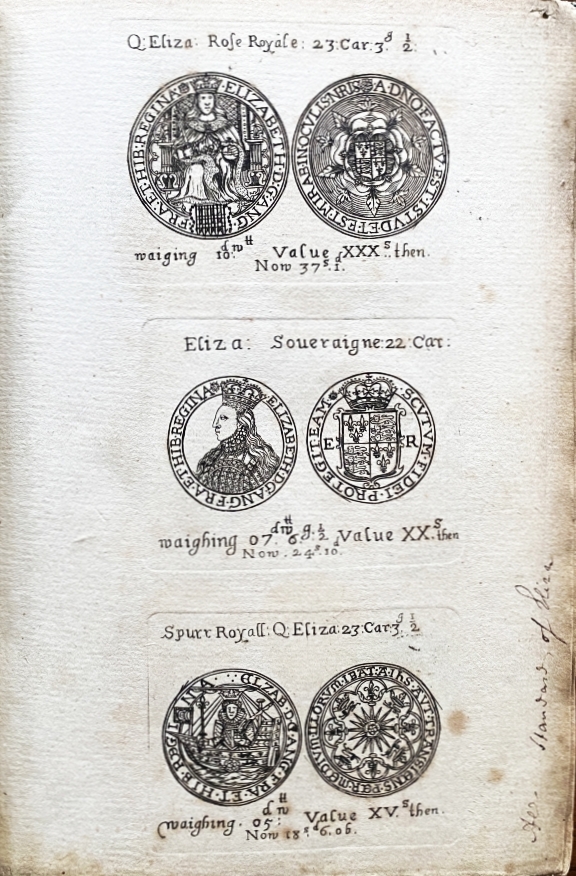 Q: Eliza: Rose Royale: 23: Car: 3. g ½
ELIZABETH·D·G·ANG·FRA·ET·HIB·REGINA
A·DNO·FACTV·EST·ISTVD·ET·EST·MIRAB·IN·OCVLIS·NRIS
waiging 10: dwtt Value XXX s. then.
Now 37 s. 1. d
Eliza: Soueraigne: 22: Car:
ELIZABETH·D·G·ANG·FRA·ET·HIB·REGINA
SCVTVM·FIDEI·PROTEGIT·EAM
E R
waighing 07. dwtt 6. g. ½ Value XX. s then
Now. 24 s. 10. d
Spurr Royall: Q: Eliza: 23: Car: 3 g ½
ELIZAB·D·G·ANG·FRA·ET·HIB·REGINA
IHS·AVT·TRANSIENS·PER·MEDIVM·ILLORVM·IBAT
waighing. 05: dwtt Value XV. s then.
Now 18 s. 6. d 06.
Standard of Eliza